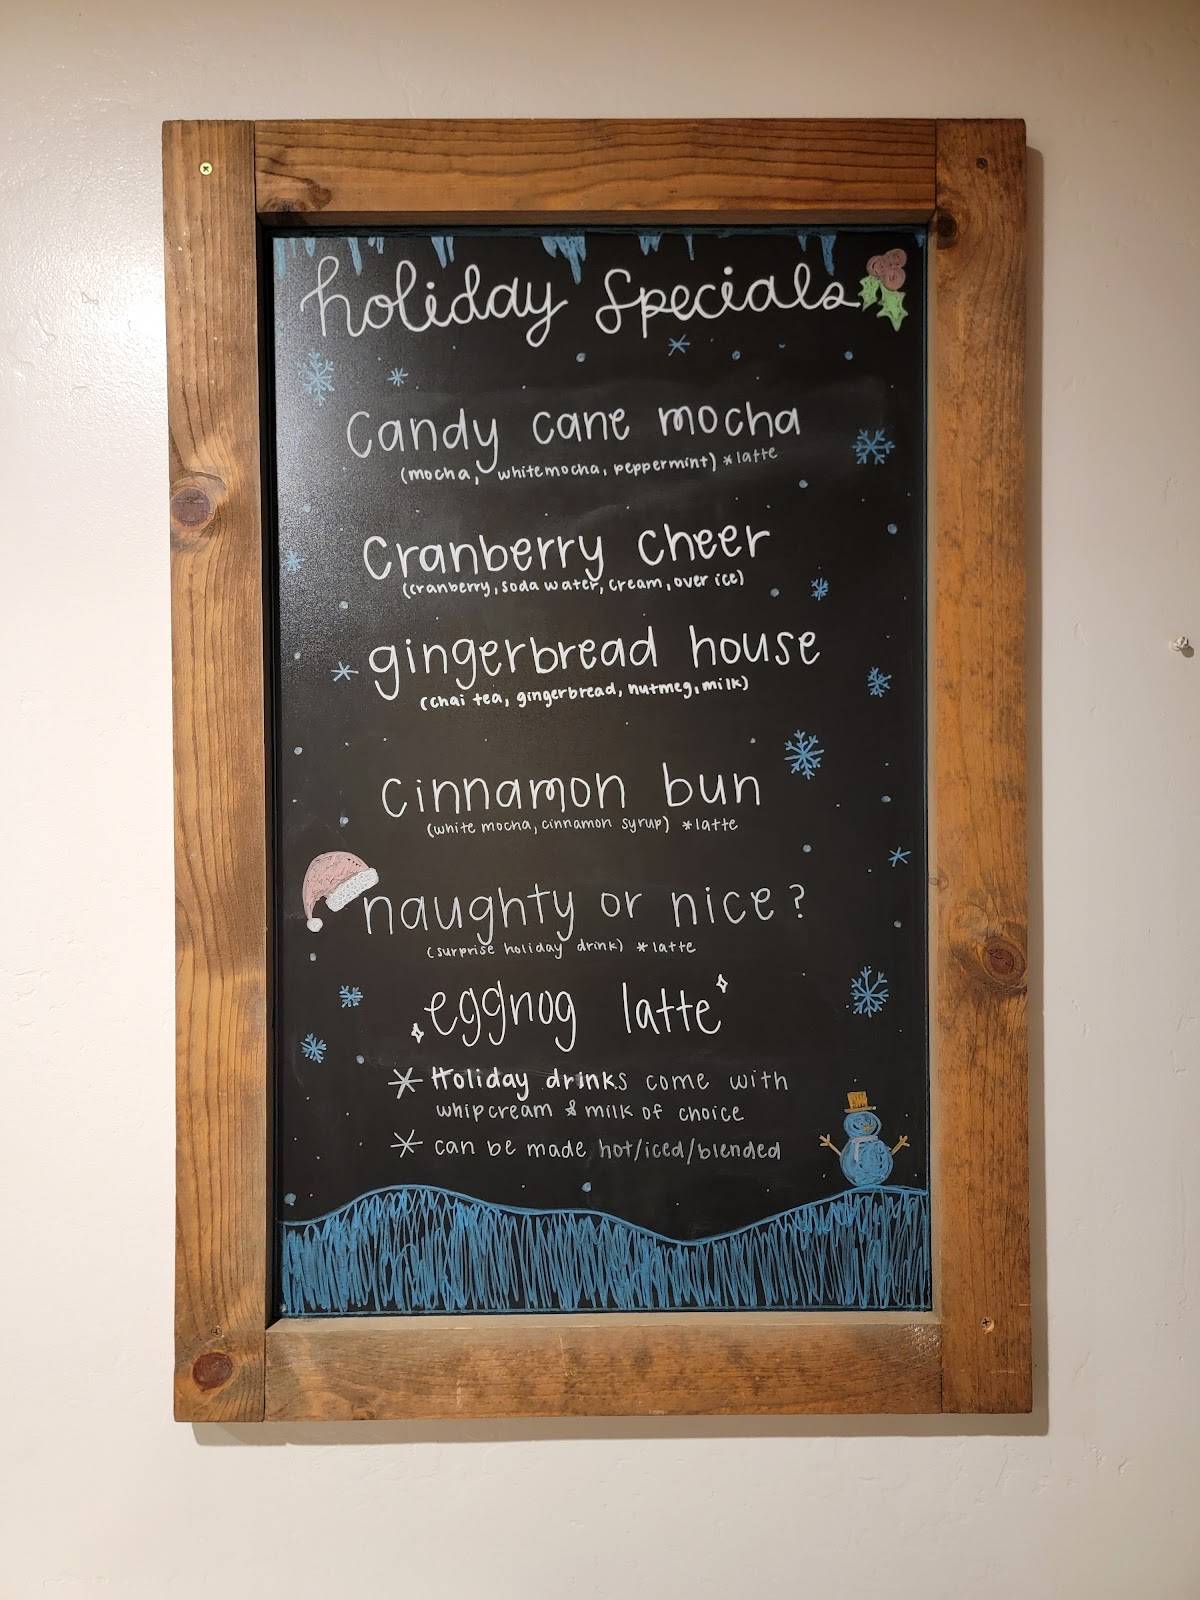 holiday specials
Candy cane mocha
(mocha, white mocha, peppermint) *latte
Cranberry cheer
(cranberry, soda water, cream, over ice)
gingerbread house
(chai tea, gingerbread, nutmeg, milk)
cinnamon bun
(white mocha, cinnamon syrup) *latte
naughty or nice?
(surprise holiday drink) *latte
eggnog latte
* Holiday drinks come with
whipcream & milk of choice
* can be made hot/iced/blended